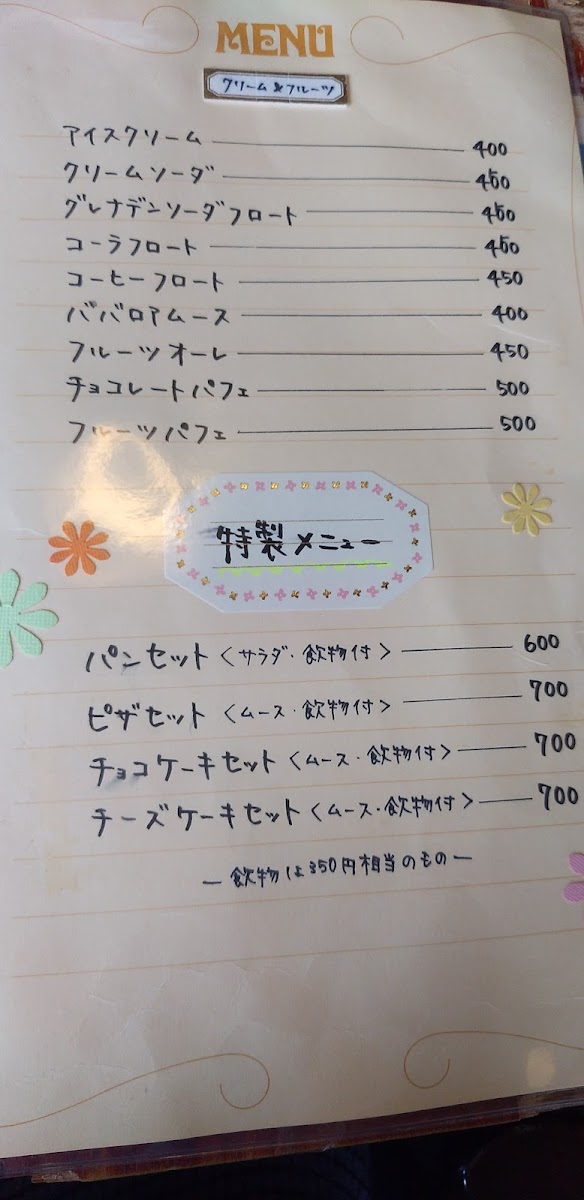 MENU
クリーム&フルーツ
アイスクリーム 400
クリームソーダ 450
グレナデンソーダフロート 450
コーラフロート 450
コーヒーフロート 450
ババロアムース 400
フルーツオーレ 450
チョコレートパフェ 500
フルーツパフェ 500
特製メニュー
パンセット〈サラダ・飲物付〉 600
ピザセット〈ムース・飲物付〉 700
チョコケーキセット〈ムース・飲物付〉 700
チーズケーキセット〈ムース・飲物付〉 700
ー飲物は350円相当のものー